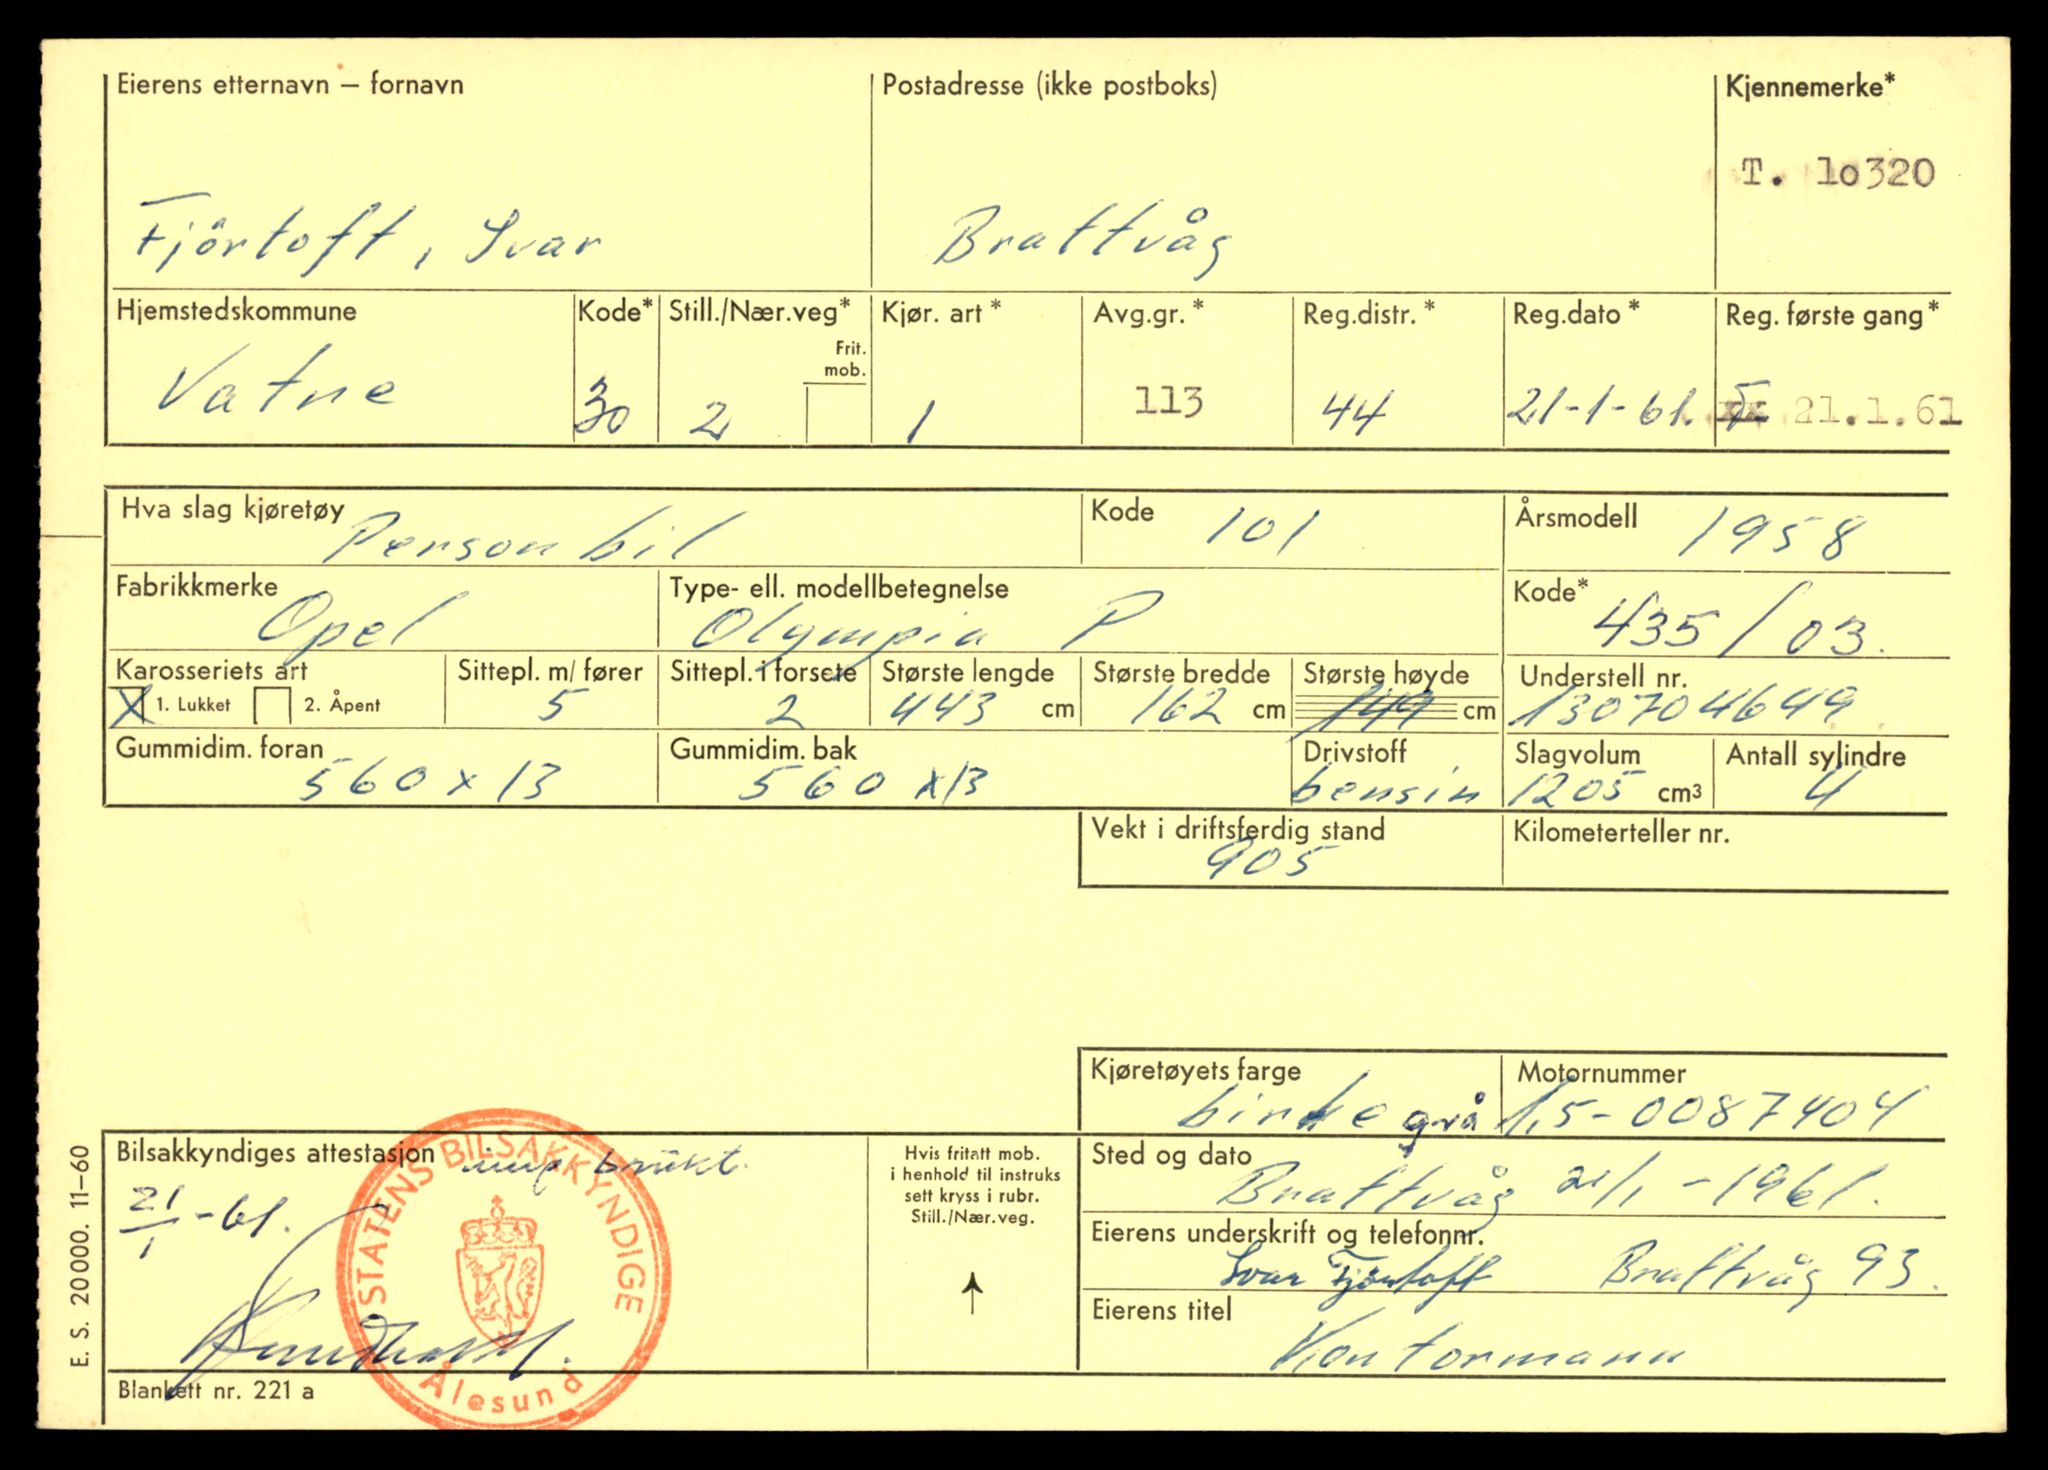 Eierens etternavn – fornavn Postadresse (ikke postboks) Kjennemerke*
T. 10320
Fjörtoft, Ivar Brattvåg
Hjemstedskommune Kode* Still./Nær.veg* Kjør. art* Avg.gr.* Reg.distr.* Reg.dato* Reg. første gang*
Frit. mob.
Vatne 30 2 1 113 44 21-1-61. 21.1.61
Hva slag kjøretøy Personbil Kode 101 Årsmodell 1958
Fabrikkmerke Type- ell. modellbetegnelse Kode*
Opel Olympia P 435/03.
Karosseriets art Sittepl. m/ fører Sittepl. i forsete Største lengde Største bredde Største høyde Understell nr.
X 1. Lukket 2. Åpent 5 2 443 cm 162 cm 149 cm 130704649
Gummidim. foran Gummidim. bak Drivstoff Slagvolum Antall sylindre
560 x 13 560 x 13 bensin 1205 cm3 4
Vekt i driftsferdig stand Kilometerteller nr.
905
Kjøretøyets farge Motornummer
grå 1,5-0087404
Bilsakkyndiges attestasjon brukt.
21/1-61.
STATENS BILSAKKYNDIGE
Ålesund
Hvis fritatt mob.
i henhold til instruks
sett kryss i rubr.
Still./Nær.veg.
Sted og dato
Brattvåg 21/1-1961.
Eierens underskrift og telefonnr.
Ivar Fjörtoft Brattvåg 93.
Eierens titel
Kontormann
Blankett nr. 221 a
E. S. 20000. 11–60